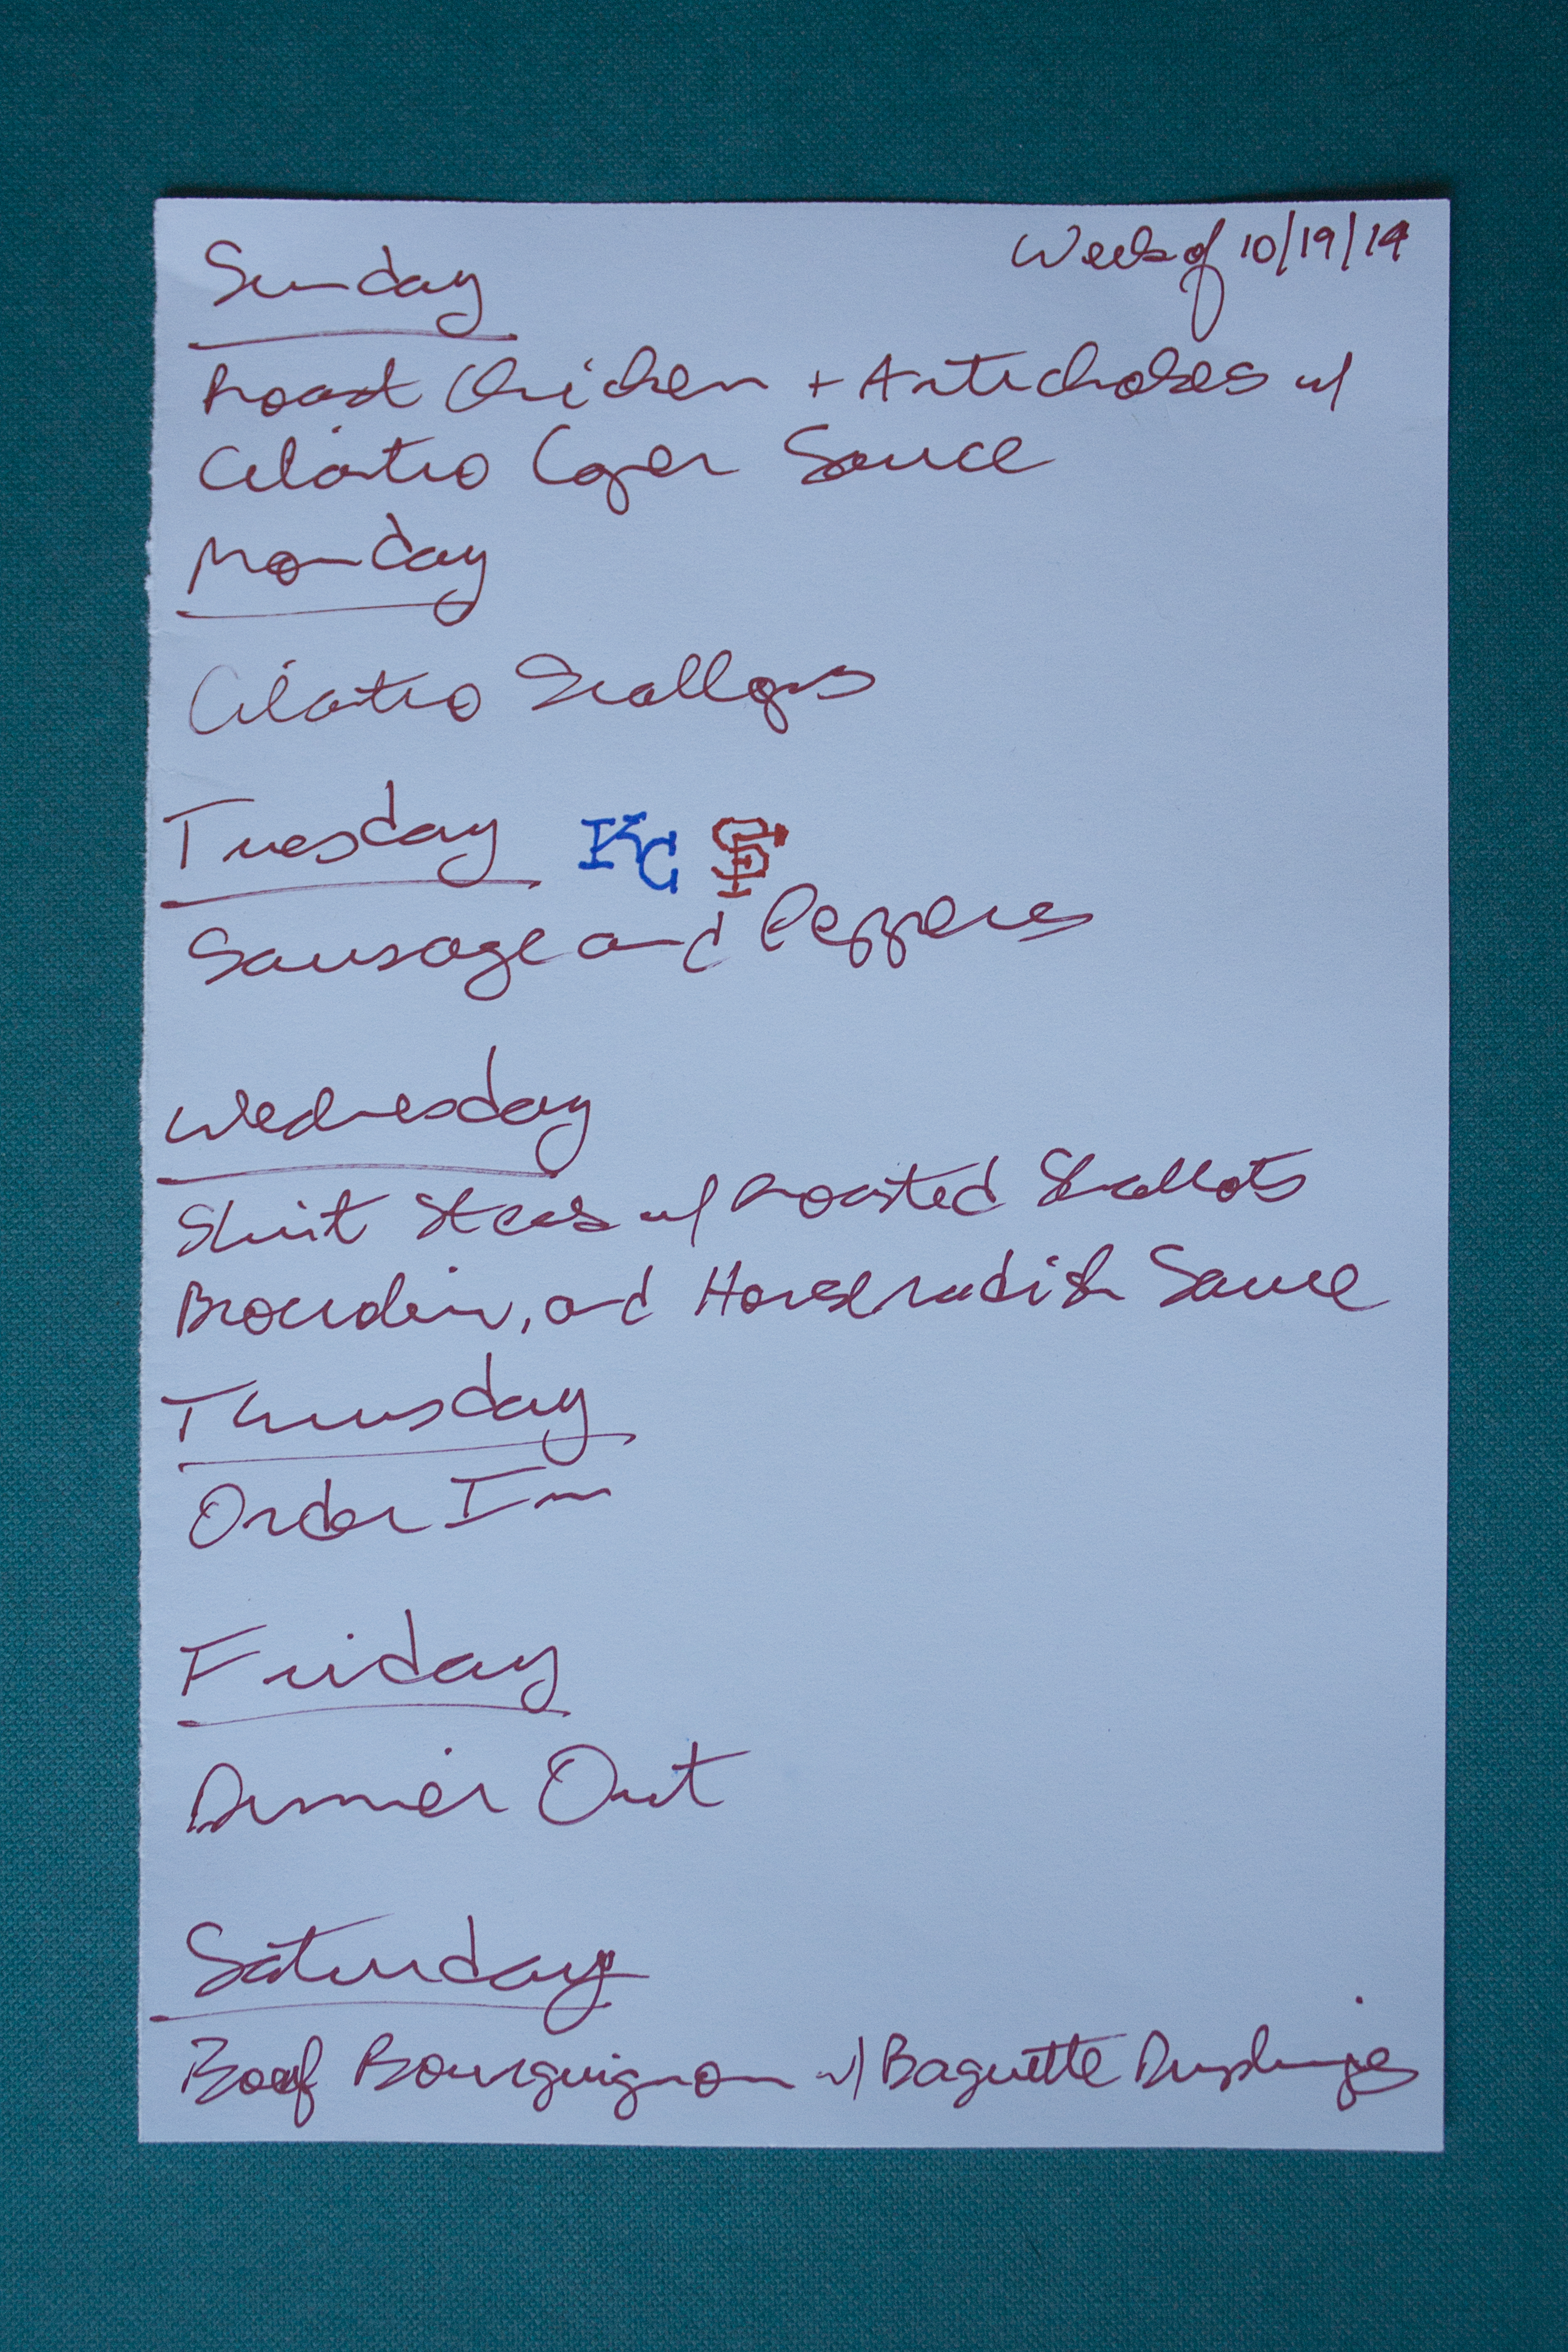 Week of 10/19/14
Sunday
Roast Chicken + Artichokes w/
Cilantro Caper Sauce
Monday
Cilantro Scallops
Tuesday KC SF
Sausage and Peppers
Wednesday
Skirt Steak w/ Roasted Shallots
and Horseradish Sauce
Thursday
Order In
Friday
Dinner Out
Saturday
Beef Bourguignon w/ Baguette Dumplings